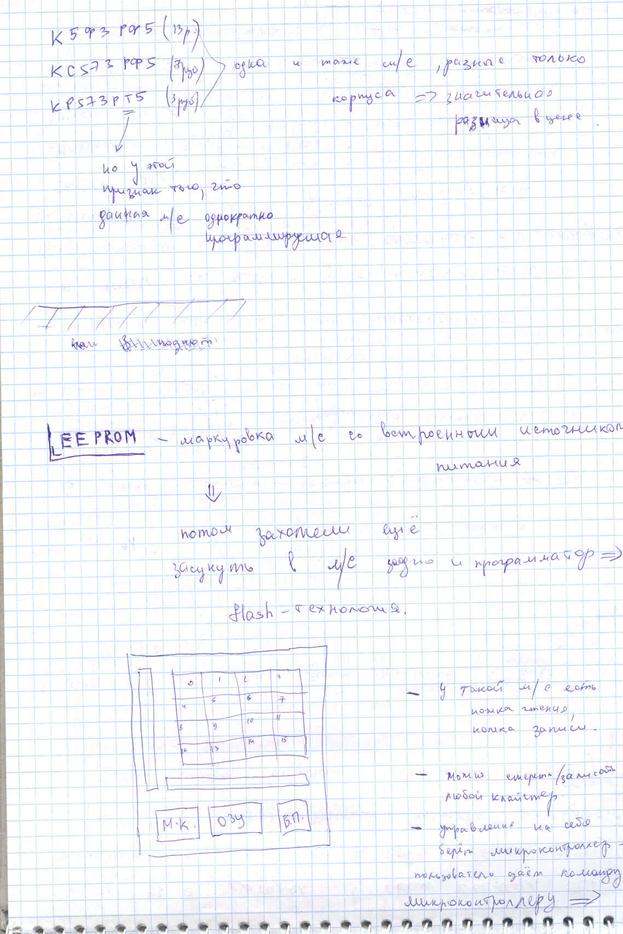 К573РФ5 (13р.)
КС573РФ5 (7руб) одна и таже м/с, разные только
КР573РТ5 (3руб) корпуса => значительная
разница в цене.
но у этой
признак того, что
данная м/с однократно
программируемая
EEPROM – маркуровка м/с со встроенным источником
питания
потом захотели ещё
засунуть в м/с заодно и программатор =>
flash-технология.
0 1 2 3
4 5 6 7
8 9 10 11
12 13 14 15
М.К. ОЗУ В.П.
– У такой м/с есть
ножка чтения,
ножка записи.
– можно стереть/записать
любой кластер
– управление на себя
берёт микроконтроллер –
пользователь даёт команду
микроконтроллеру =>